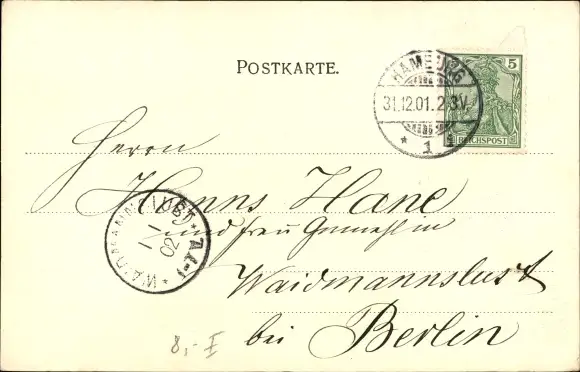 POSTKARTE.
5
REICHSPOST
HAMBURG
31.12.01. 2-3V.
* 1
Herrn
Hanns Hane
und Frau Gemahlin
Waidmannslust
bei Berlin
WAIDMANNSLUST
1 1
02
8,- I